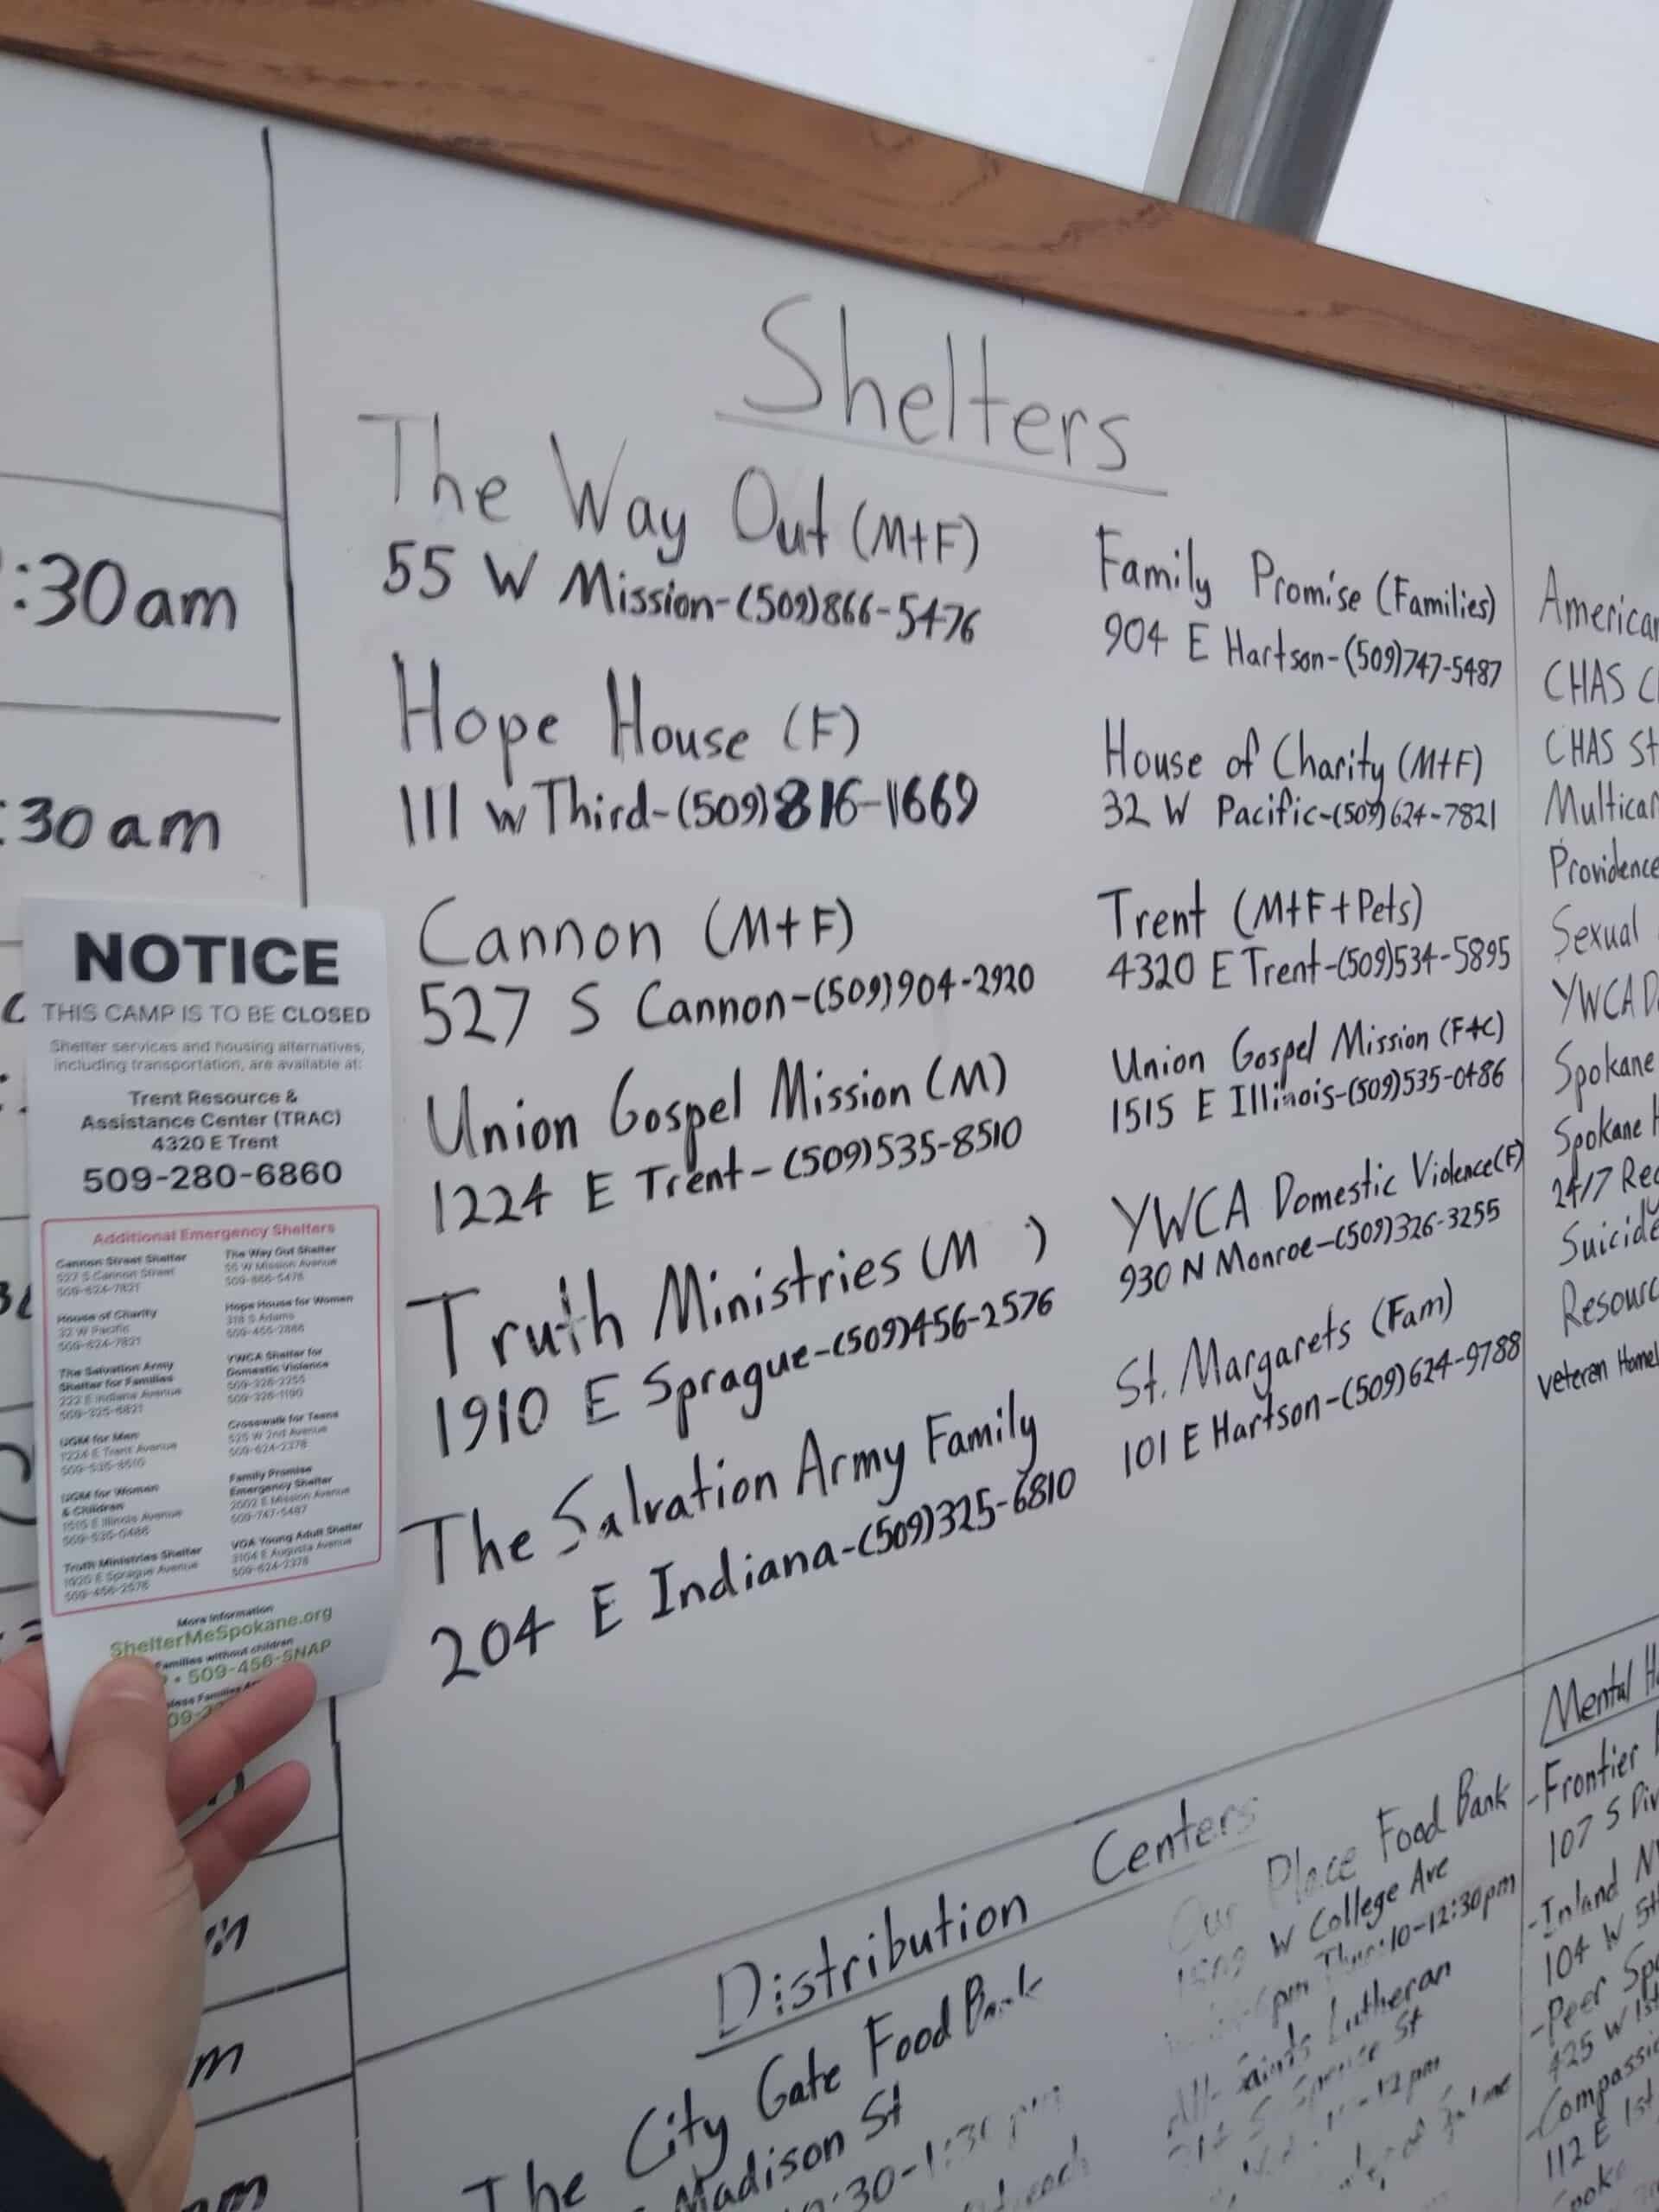 :30am
:30am
Shelters
The Way Out (M+F)
55 W Mission-(509)866-5476
Hope House (F)
111 W Third-(509)816-1669
Cannon (M+F)
527 S Cannon-(509)904-2920
Union Gospel Mission (M)
1224 E Trent-(509)535-8510
Truth Ministries (M )
1910 E Sprague-(509)456-2576
The Salvation Army Family
204 E Indiana-(509)325-6810
Family Promise (Families)
904 E Hartson-(509)747-5487
House of Charity (M+F)
32 W Pacific-(509)624-7821
Trent (M+F+Pets)
4320 E Trent-(509)534-5895
Union Gospel Mission (F+C)
1515 E Illinois-(509)535-0486
YWCA Domestic Violence(F)
930 N Monroe-(509)326-3255
St. Margarets (Fam)
101 E Hartson-(509)624-9788
American
CHAS
CHAS St
Multicar
Providence
Sexual
YWCA D
Spokane
Spokane
24/7 Rec
Suicide
Resourc
Veteran Homel
NOTICE
THIS CAMP IS TO BE CLOSED
Shelter services and housing alternatives,
including transportation, are available at:
Trent Resource &
Assistance Center (TRAC)
4320 E Trent
509-280-6860
Additional Emergency Shelters
Cannon Street Shelter
527 S Cannon Street
509-624-7821
House of Charity
32 W Pacific
509-624-7821
The Salvation Army
Shelter for Families
222 E Indiana Avenue
509-325-6821
UGM for Men
1224 E Trent Avenue
509-535-8510
UGM for Women
& Children
1515 E Illinois Avenue
509-535-0486
Truth Ministries Shelter
1920 E Sprague Avenue
509-456-2576
The Way Out Shelter
55 W Mission Avenue
509-866-5476
Hope House for Women
318 S Adams
509-455-2886
YWCA Shelter for
Domestic Violence
509-326-2255
509-326-1190
Crosswalk for Teens
525 W 2nd Avenue
509-624-2378
Family Promise
Emergency Shelter
2002 E Mission Avenue
509-747-5487
VOA Young Adult Shelter
3104 E Augusta Avenue
509-624-2378
More Information
ShelterMeSpokane.org
Families without children
• 509-456-SNAP
Families
Distribution Centers
The City Gate Food Bank
Madison St
:30-1:30pm
Our Place Food Bank
W College Ave
pm Thur:10-12:30pm
All Saints Lutheran
S Spruce St
-12pm
Mental H
-Frontier
107 S Div
-Inland N
104 W 5t
-Peer Spo
425 W 1st
-Compassi
112 E 1st